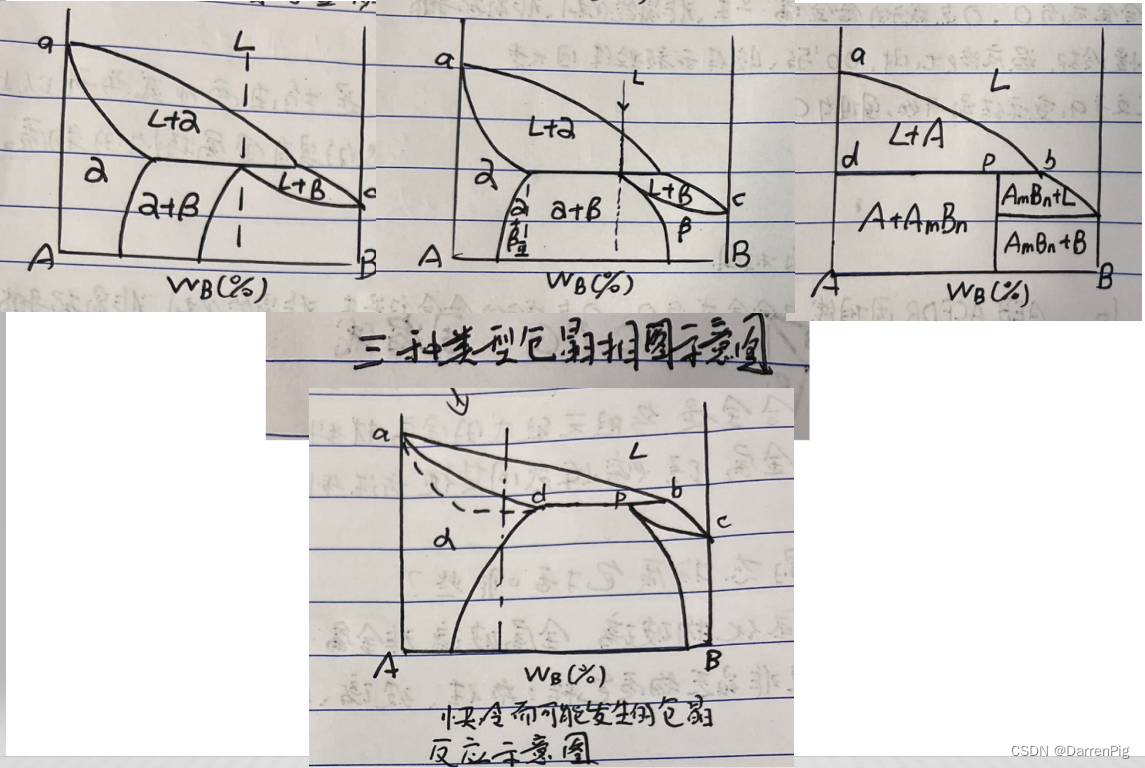 a
L
L+α
α
α+β
L+β
c
A
B
WB(%)
a
L
L+α
α
α+β
α+βⅡ
L+β
β
c
A
B
WB(%)
a
L
L+A
d
P
b
AmBn+L
A+AmBn
AmBn+B
A
B
WB(%)
三种类型包晶相图示意图
a
L
d
P
b
c
α
A
B
WB(%)
快冷而可能发生的包晶
反应示意图
CSDN @DarrenPig